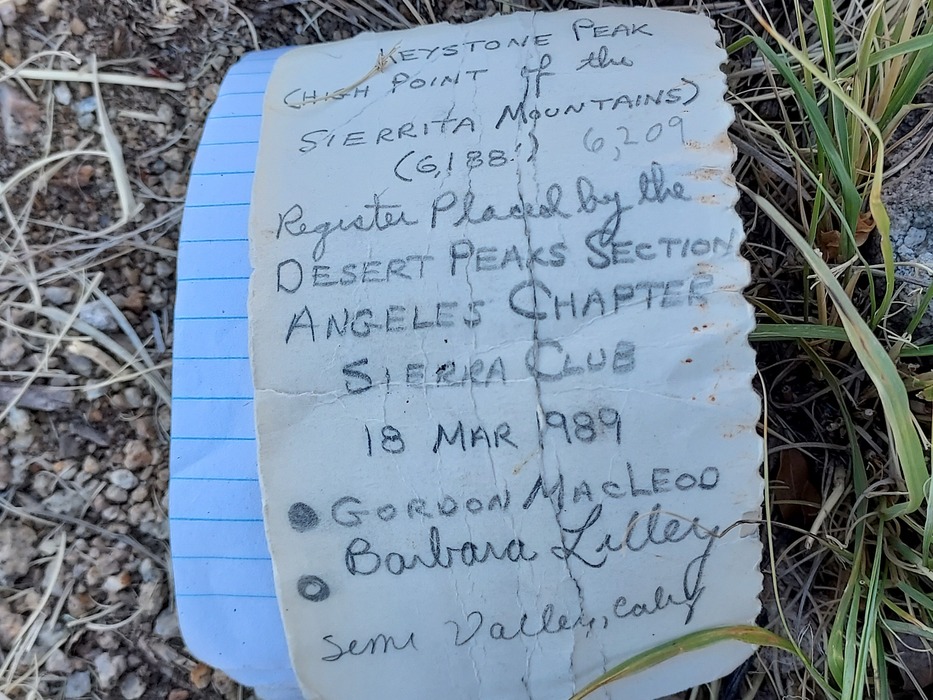 KEYSTONE PEAK
(HIGH POINT of the
SIERRITA MOUNTAINS)
(6,188') 6,209
Register Placed by the
DESERT PEAKS SECTION
ANGELES CHAPTER
SIERRA CLUB
18 MAR 1989
GORDON MACLEOD
Barbara Lilley
Semi Valley, Calif